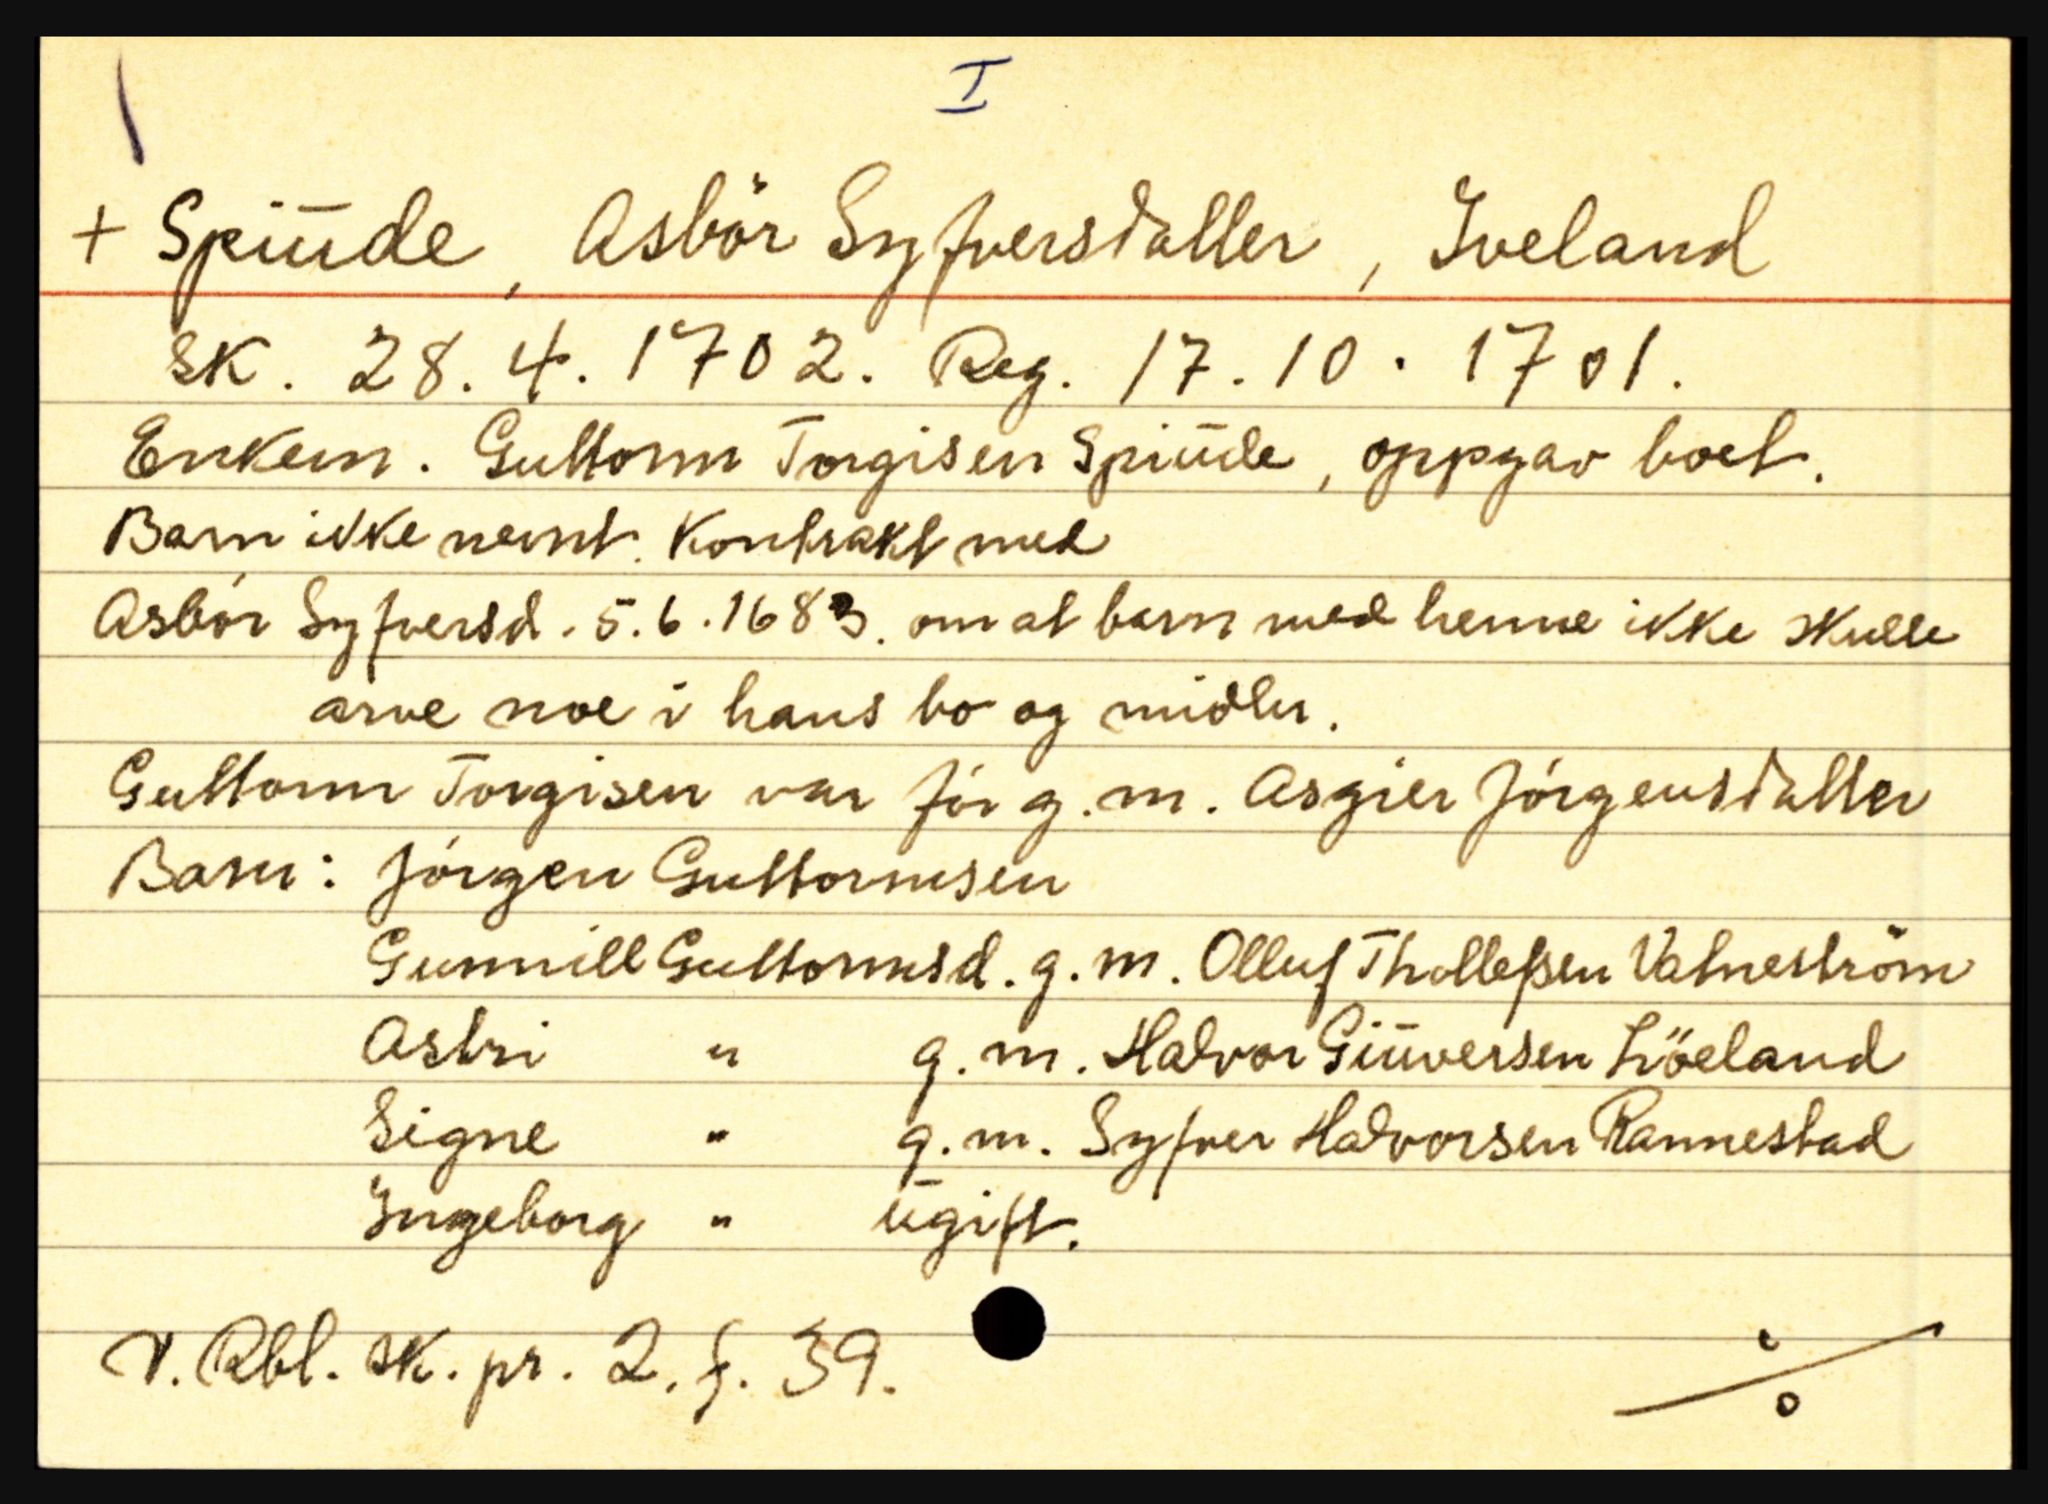 I
+ Spiüde, Asbör Syfversdatter, Iveland
Sk. 28.4.1702. Reg. 17.10.1701.
Enkem. Guttorm Torgisen Spiüde, oppgav boet.
Barn ikke nevnt. Kontrakt med
Asbör Syfversd. 5.6.1683. om at barn med henne ikke skulle
arve noe i hans bo og midler.
Guttorm Torgisen var før g. m. Asgier Jörgensdatter
Barn: Jörgen Guttormsen
Gunnill Guttormsd. g. m. Olluf Tholleßen Vatneström
Astri " g. m. Halvor Giüversen Löeland
Signe " g. m. Syfver Halvorsen Rannestad
Ingeborg " ugift.
V. Rbl. sk. pr. 2. f. 39.